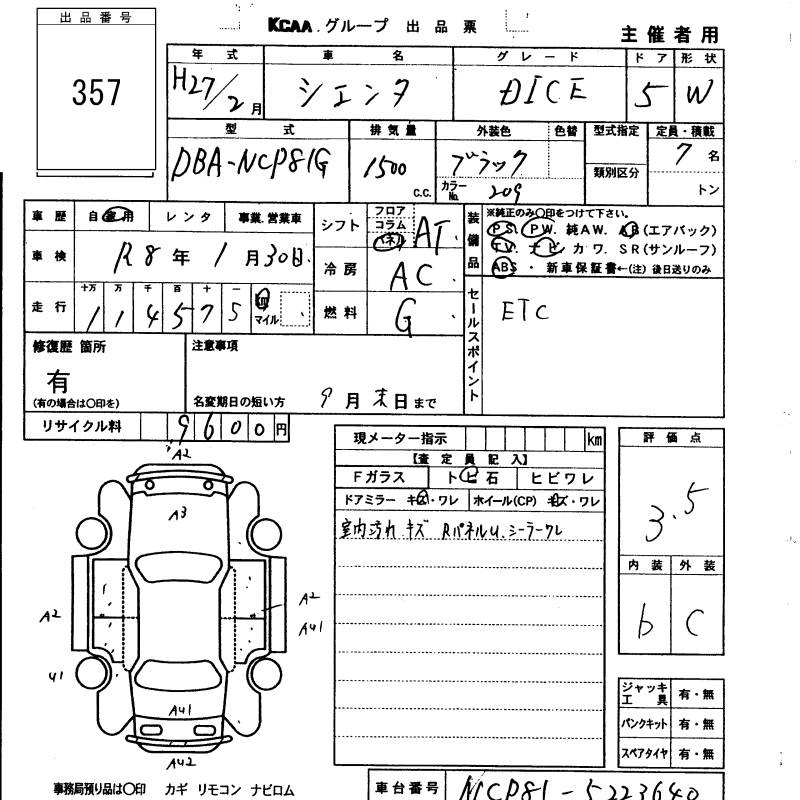 出品番号
357
KCAA.グループ 出品票
主催者用
年式 車名 グレード ドア 形状
H27/2月 シエンタ DICE 5 W
型式 排気量 外装色 色替 型式指定 定員・積載
DBA-NCP81G 1500 c.c. ブラック 7名
カラーNo. 209 類別区分 トン
車歴 自家用 レンタ 事業.営業車
車検 R8年1月30日
走行 十万 万 千 百 十 一
1 1 4 5 7 5 km マイル
シフト フロア コラム (ネ) AT
冷房 AC
燃料 G
装備品
※純正のみ〇印をつけて下さい。
PS. PW. 純AW. AB(エアバッグ)
TV. ナビ カワ. SR(サンルーフ)
ABS・新車保証書←(注)後日送りのみ
セールスポイント
ETC
修復歴 箇所
有
(有の場合は〇印を)
注意事項
名変期日の短い方 9月末日まで
リサイクル料 9600円
現メーター指示 km
【査定員記入】
Fガラス トビ石 ヒビワレ
ドアミラー キズ・ワレ ホイール(CP) キズ・ワレ
室内汚れ キズ RパネルU.シーラークレ
評価点
3.5
内装 外装
b C
A2
A3
A2
A2
A41
U1
A41
A42
ジャッキ工具 有・無
パンクキット 有・無
スペアタイヤ 有・無
事務局預り品は〇印 カギ リモコン ナビロム
車台番号 NCP81-5223640